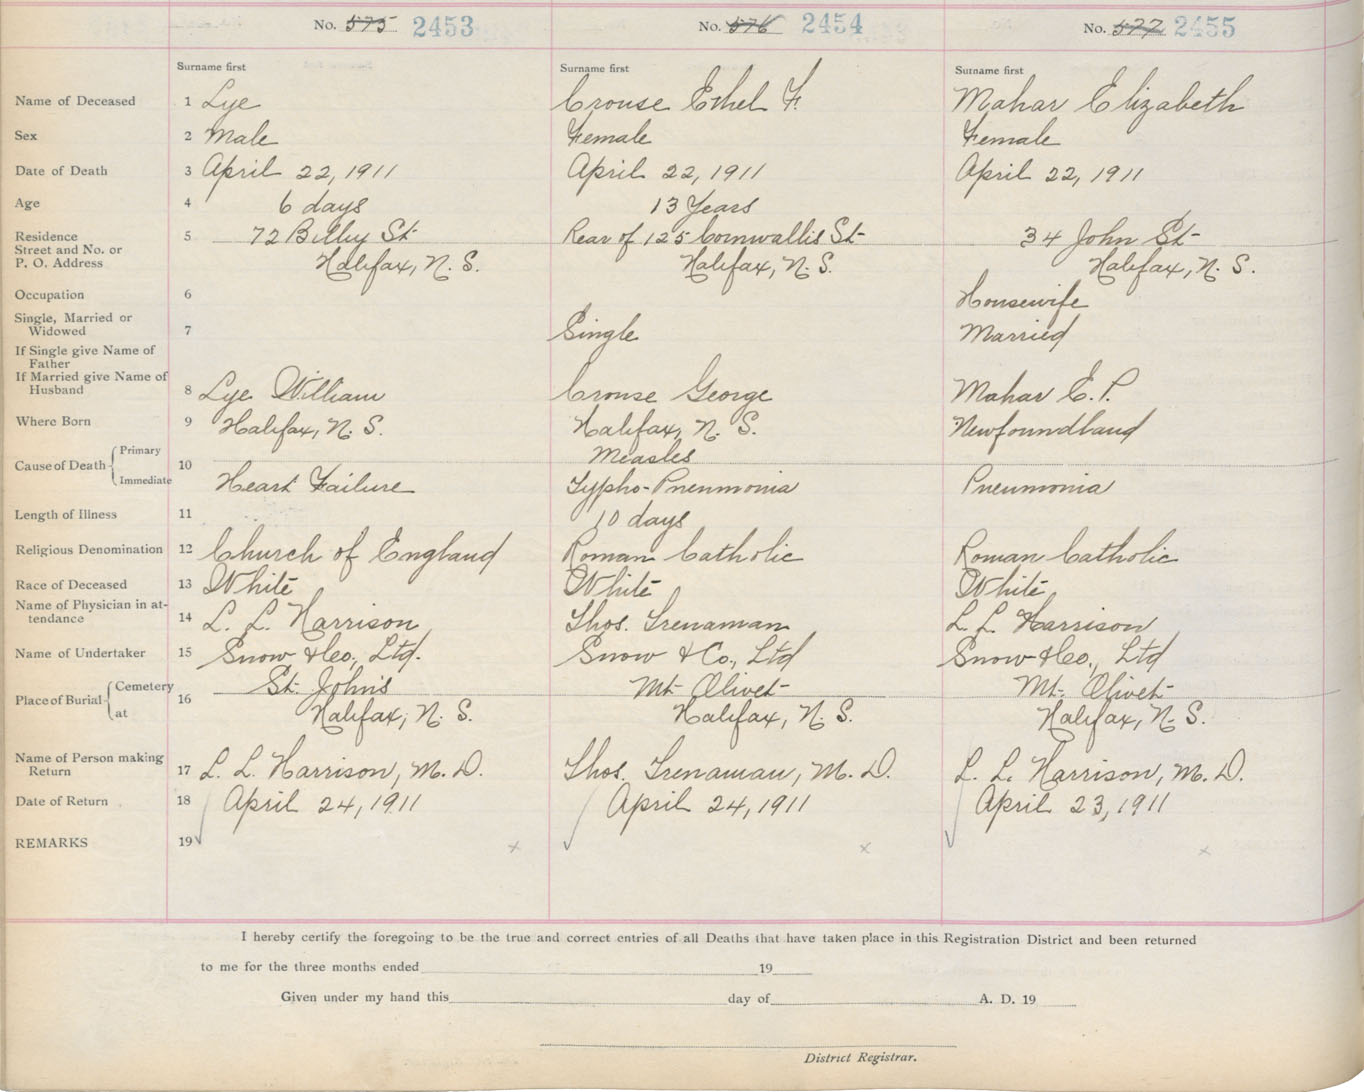 No. 575 2453 No. 576 2454 No. 577 2455
Surname first Surname first Surname first
Name of Deceased 1 Lye Crouse Ethel F. Mahar Elizabeth
Sex 2 Male Female Female
Date of Death 3 April 22, 1911 April 22, 1911 April 22, 1911
Age 4 6 days 13 Years
Residence 5 72 Bilby St Rear of 125 Cornwallis St 34 John St
Street and No. or
P. O. Address Halifax, N. S. Halifax, N. S. Halifax, N. S.
Occupation 6 Housewife
Single, Married or
Widowed 7 Single Married
If Single give Name of
Father
If Married give Name of
Husband 8 Lye William Crouse George Mahar E. P.
Where Born 9 Halifax, N. S. Halifax, N. S. Newfoundland
Cause of Death Primary 10 Measles
Immediate Heart Failure Typho-Pneumonia Pneumonia
Length of Illness 11 10 days
Religious Denomination 12 Church of England Roman Catholic Roman Catholic
Race of Deceased 13 White White White
Name of Physician in at-
tendance 14 L. L. Harrison Thos. Trenaman L. L. Harrison
Name of Undertaker 15 Snow & Co., Ltd. Snow & Co., Ltd Snow & Co., Ltd
Place of Burial Cemetery 16 St. John's Mt Olivet Mt. Olivet
at Halifax, N. S. Halifax, N. S. Halifax, N. S.
Name of Person making
Return 17 L. L. Harrison, M. D. Thos. Trenaman, M. D. L. L. Harrison, M. D.
Date of Return 18 April 24, 1911 April 24, 1911 April 23, 1911
REMARKS 19
I hereby certify the foregoing to be the true and correct entries of all Deaths that have taken place in this Registration District and been returned
to me for the three months ended 19
Given under my hand this day of A. D. 19
District Registrar.